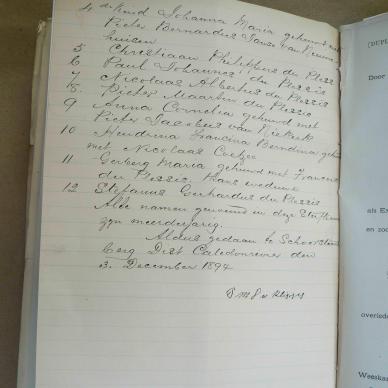 4 de Kind Johanna Maria gehuwd met
Pieter Bernardus Janse van Rensen=
huisen
5 Christiaan Philippus du Plessis
6 Paul Johannes du Plessis
7 Nicolaas Albertus du Plessis
8. Pieter Maarten du Plessis
9 Anna Cornelia gehuwd met
Pieter Jacobus van Niekerk
10 Hendrina Francina Berndina gehuwd
met Nicolaas Coetzee
11 Gerberg Maria gehuwd met Francois
du Plessis. Thans weduwe
12 Stefanus Gerhardus du Plessis
Alle namen genoemd in deze
zyn meerderjarig.
Aldus gedaan te Schoorsteen
berg Dist Caledonrivier den
3. December 1894
(DUPL
Door
als Ex
en zoo
overlede
Weeska